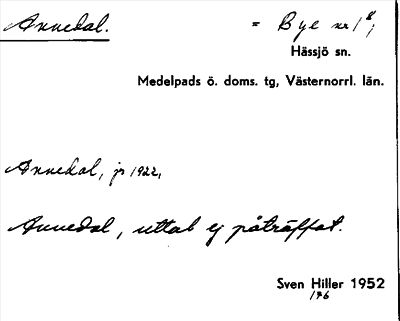 Annedal. = Bye nr 1⁸,
Hässjö sn.
Medelpads ö. doms. tg, Västernorrl. län.
Annedal, jr 1922,
Annedal, uttal ej påträffat.
Sven Hiller 1952
1⁄6